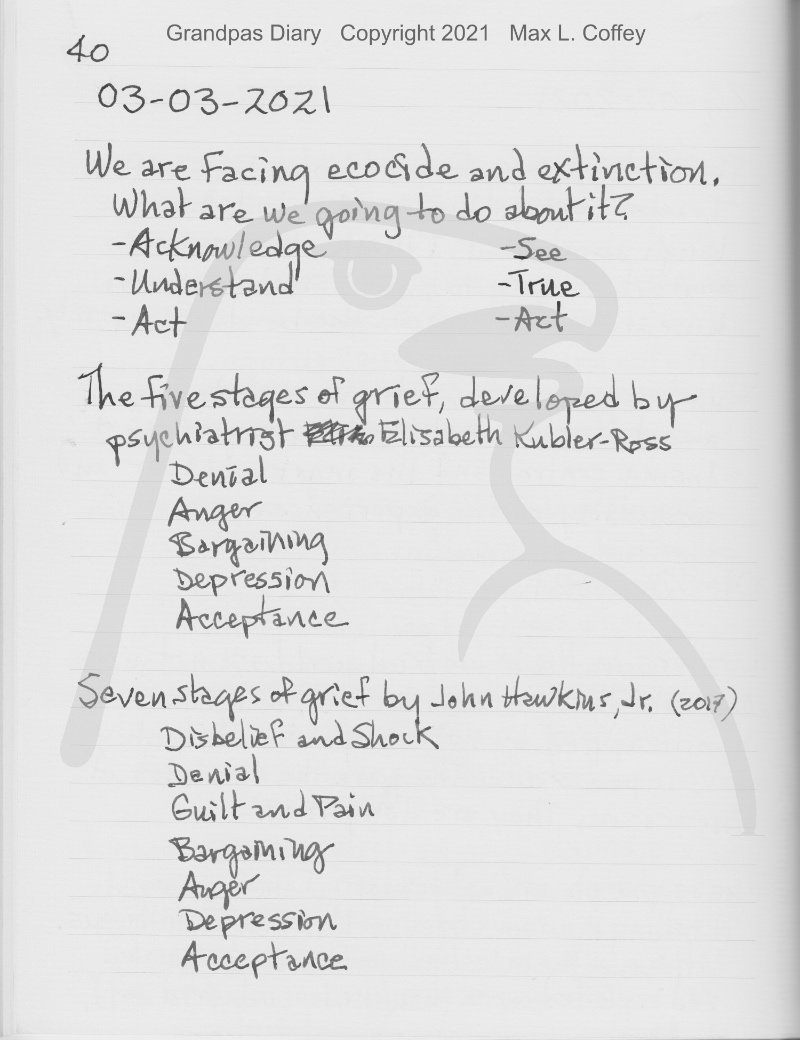 Grandpas Diary Copyright 2021 Max L. Coffey
40
03-03-2021
We are facing ecocide and extinction.
What are we going to do about it?
-Acknowledge -See
-Understand -True
-Act -Act
The five stages of grief, developed by
psychiatrist Elisabeth Kubler-Ross
Denial
Anger
Bargaining
Depression
Acceptance
Seven stages of grief by John Hawkins, Jr. (2017)
Disbelief and Shock
Denial
Guilt and Pain
Bargaining
Anger
Depression
Acceptance